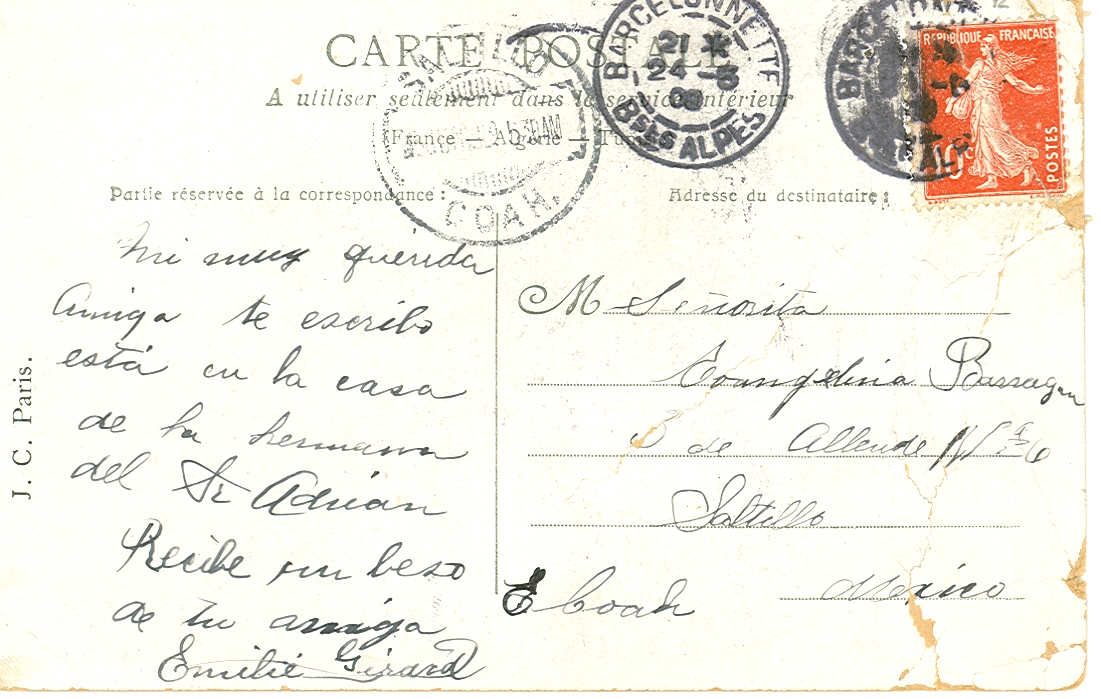 CARTE POSTALE
A utiliser seulement dans le service intérieur
(France — Algérie — Tunisie)
SALTILLO
5 30 AM
COAH.
BARCELONNETTE
21
24 - 6
08
Bses ALPES
BARCELONNETTE
ALPES
REPUBLIQUE FRANÇAISE
10c
POSTES
Partie réservée à la correspondance :
Adresse du destinataire :
Mi muy querida
Amiga te escribo
está en la casa
de la hermana
del Sr Adrian
Recibe un beso
de tu amiga
Emilie Girard
M Señorita
Evangelina Barragan
3 de Allende Nº 6
Saltillo
E Coah Mexico
J. C. Paris.